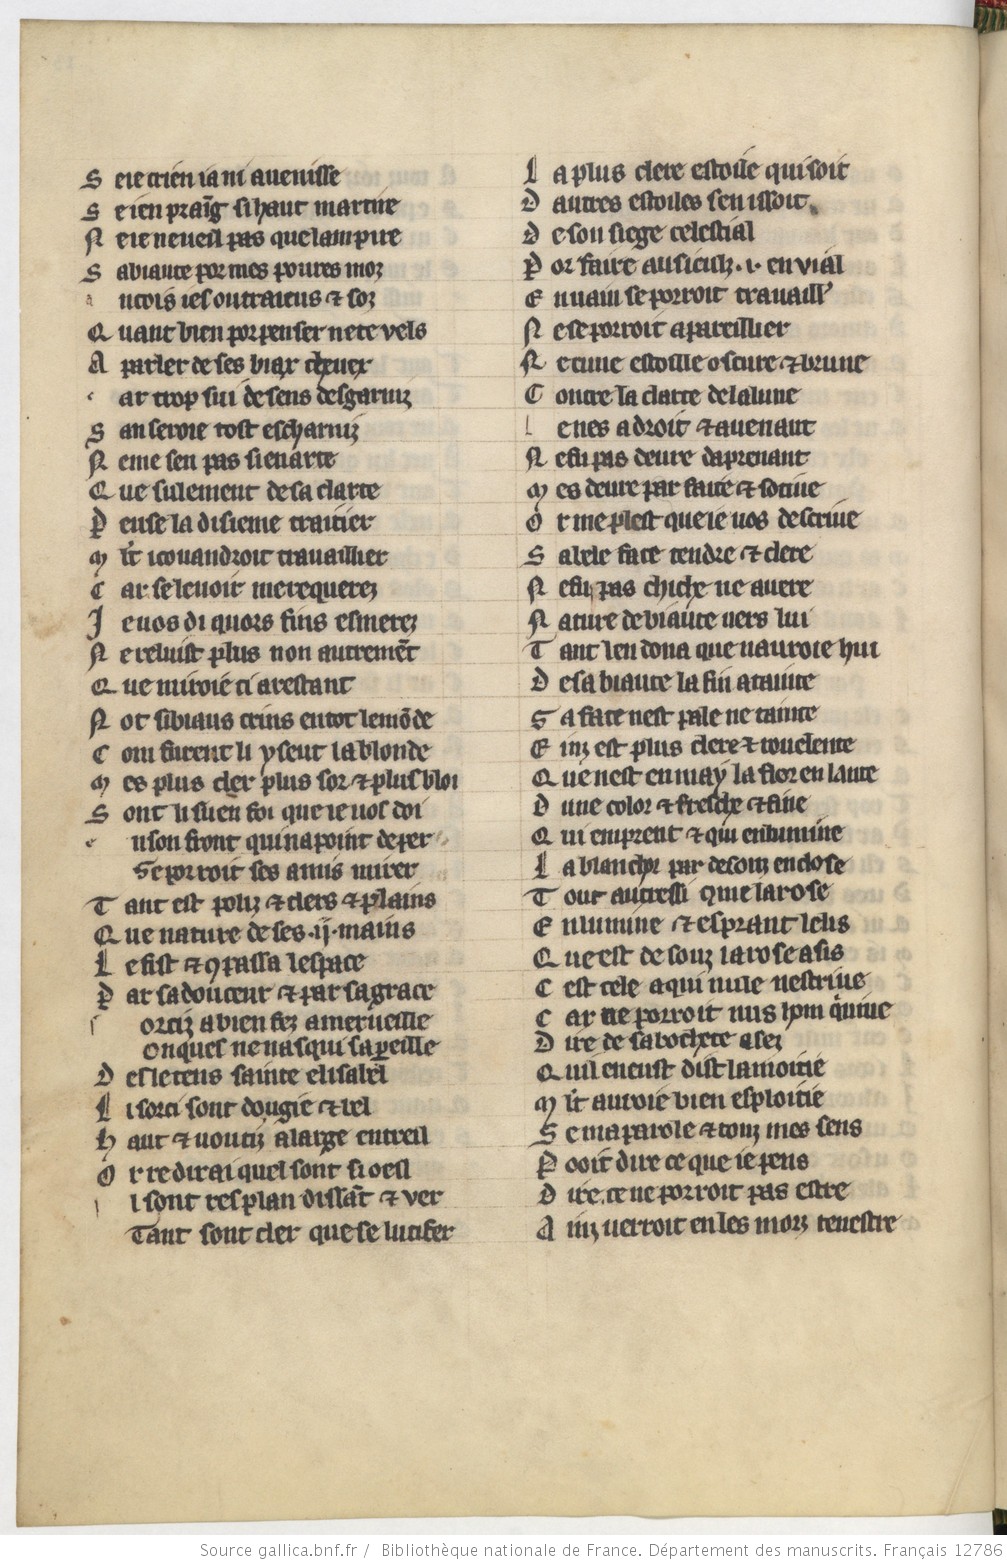 S eie crien ia ni avenisse
S e ien praīg si haut martire
N e ie ne veil pas que lampire
S a biaute por mes poures moz
a ncois ies outraieus & soz
Q uant bien porpenser ne te vels
A parler de ses biax cheuex
c ar trop sui de sens desgarniz
S an seroie tost escharniz
N e me sen pas si en arte
Q ue sulement de sa clarte
P euse la disieme traitier
M l't i couandroit travaillier
C ar se le uoir me requerez
J e uos di quors fins esmerez
N e reluist plus non autremēt
Q ue miroie ci arestant
N ot si biaus crins en tot le mōde
C om furent li yseut la blonde
M es plus cler plus sor & plus bloi
S ont li suen foi que ie uos doi
e n son front qui na point de per
Se porroit ses amis mirer
T ant est poliz & clers & plains
Q ue nature de ses .ij. mains
L e fist & 9passa lespace
P ar sa douceur & par sa grace
l orciz a bien fez a merueille
Onques ne nasqui sa pareille
D es le tens sainte elisabel
L i sorcil sont dougie & bel
H aut & uoutiz a large entreil
O r redirai quel sont si oeil
l i sont resplandissāt & ver
Tant sont cler que se lucifer
L a plus clere estoile qui soit
D autres estoiles sen issoit
D e son siege celestial
P or faire ausi cuz .i. en vial
E n uain se porroit travaill'
N e se porroit apareillier
N e cune estoille oscure & brune
C ontre la clarte de la lune
l e nes a droit & auenant
N e fu pas deure daprenant
M es deure parfaite & sotiue
O r me plest que ie uos descriue
S a bele face tendre & clere
N e fu pas chiche ne auere
N ature de biaute uers lui
T ant len dona que nauroie hui
D e sa biaute la fin atainte
S a face nest pale ne tainte
E inz est plus clere & rouelente
Q ue nest en may la flor en lante
D une color & fresche & fine
Q ui emprent & qui enlumine
L a blanchor par desouz enclose
T out autressi 9me la rose
E nlumine & esprant le lis
Q ue est desouz la rose asis
C est cele a qui nule nestriue
C ar ne porroit nus hom q̄ uiue
D ire de sa bochete asez
Q uil en eust dist la moitie
M l't auroie bien esploitie
S e ma parole & touz mes sens
P ooit dire ce que ie pens
D ire. ce ne porroit pas estre
A inz uerroit en les morz renestre
Source gallica.bnf.fr / Bibliothèque nationale de France. Département des manuscrits. Français 12786